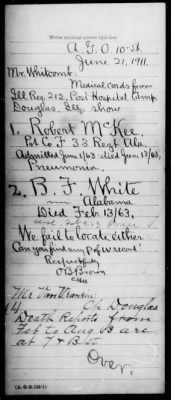 Write nothing above this line.
A.G.O. 10-St.
June 21, 1911.
Mr. Whitcomb:
Medical cards from
Ill Reg. 212, Post Hospital Camp
Douglas, Ill. show
1. Robert McKee.
Pvt Co F 33 Regt Ala.
Admitted Jan 1/63 died Jan 17/63,
Pneumonia.
2. B. F. White
Alabama
Died Feb 13/63,
We fail to locate either
Can you find any P of W record
Respectfully
O B Brown
Mr. Van
Cp. Douglas
Death Reports from
Feb to Aug 63 are
at 7 & B St.
Over.
(A. G. O. 159-1)